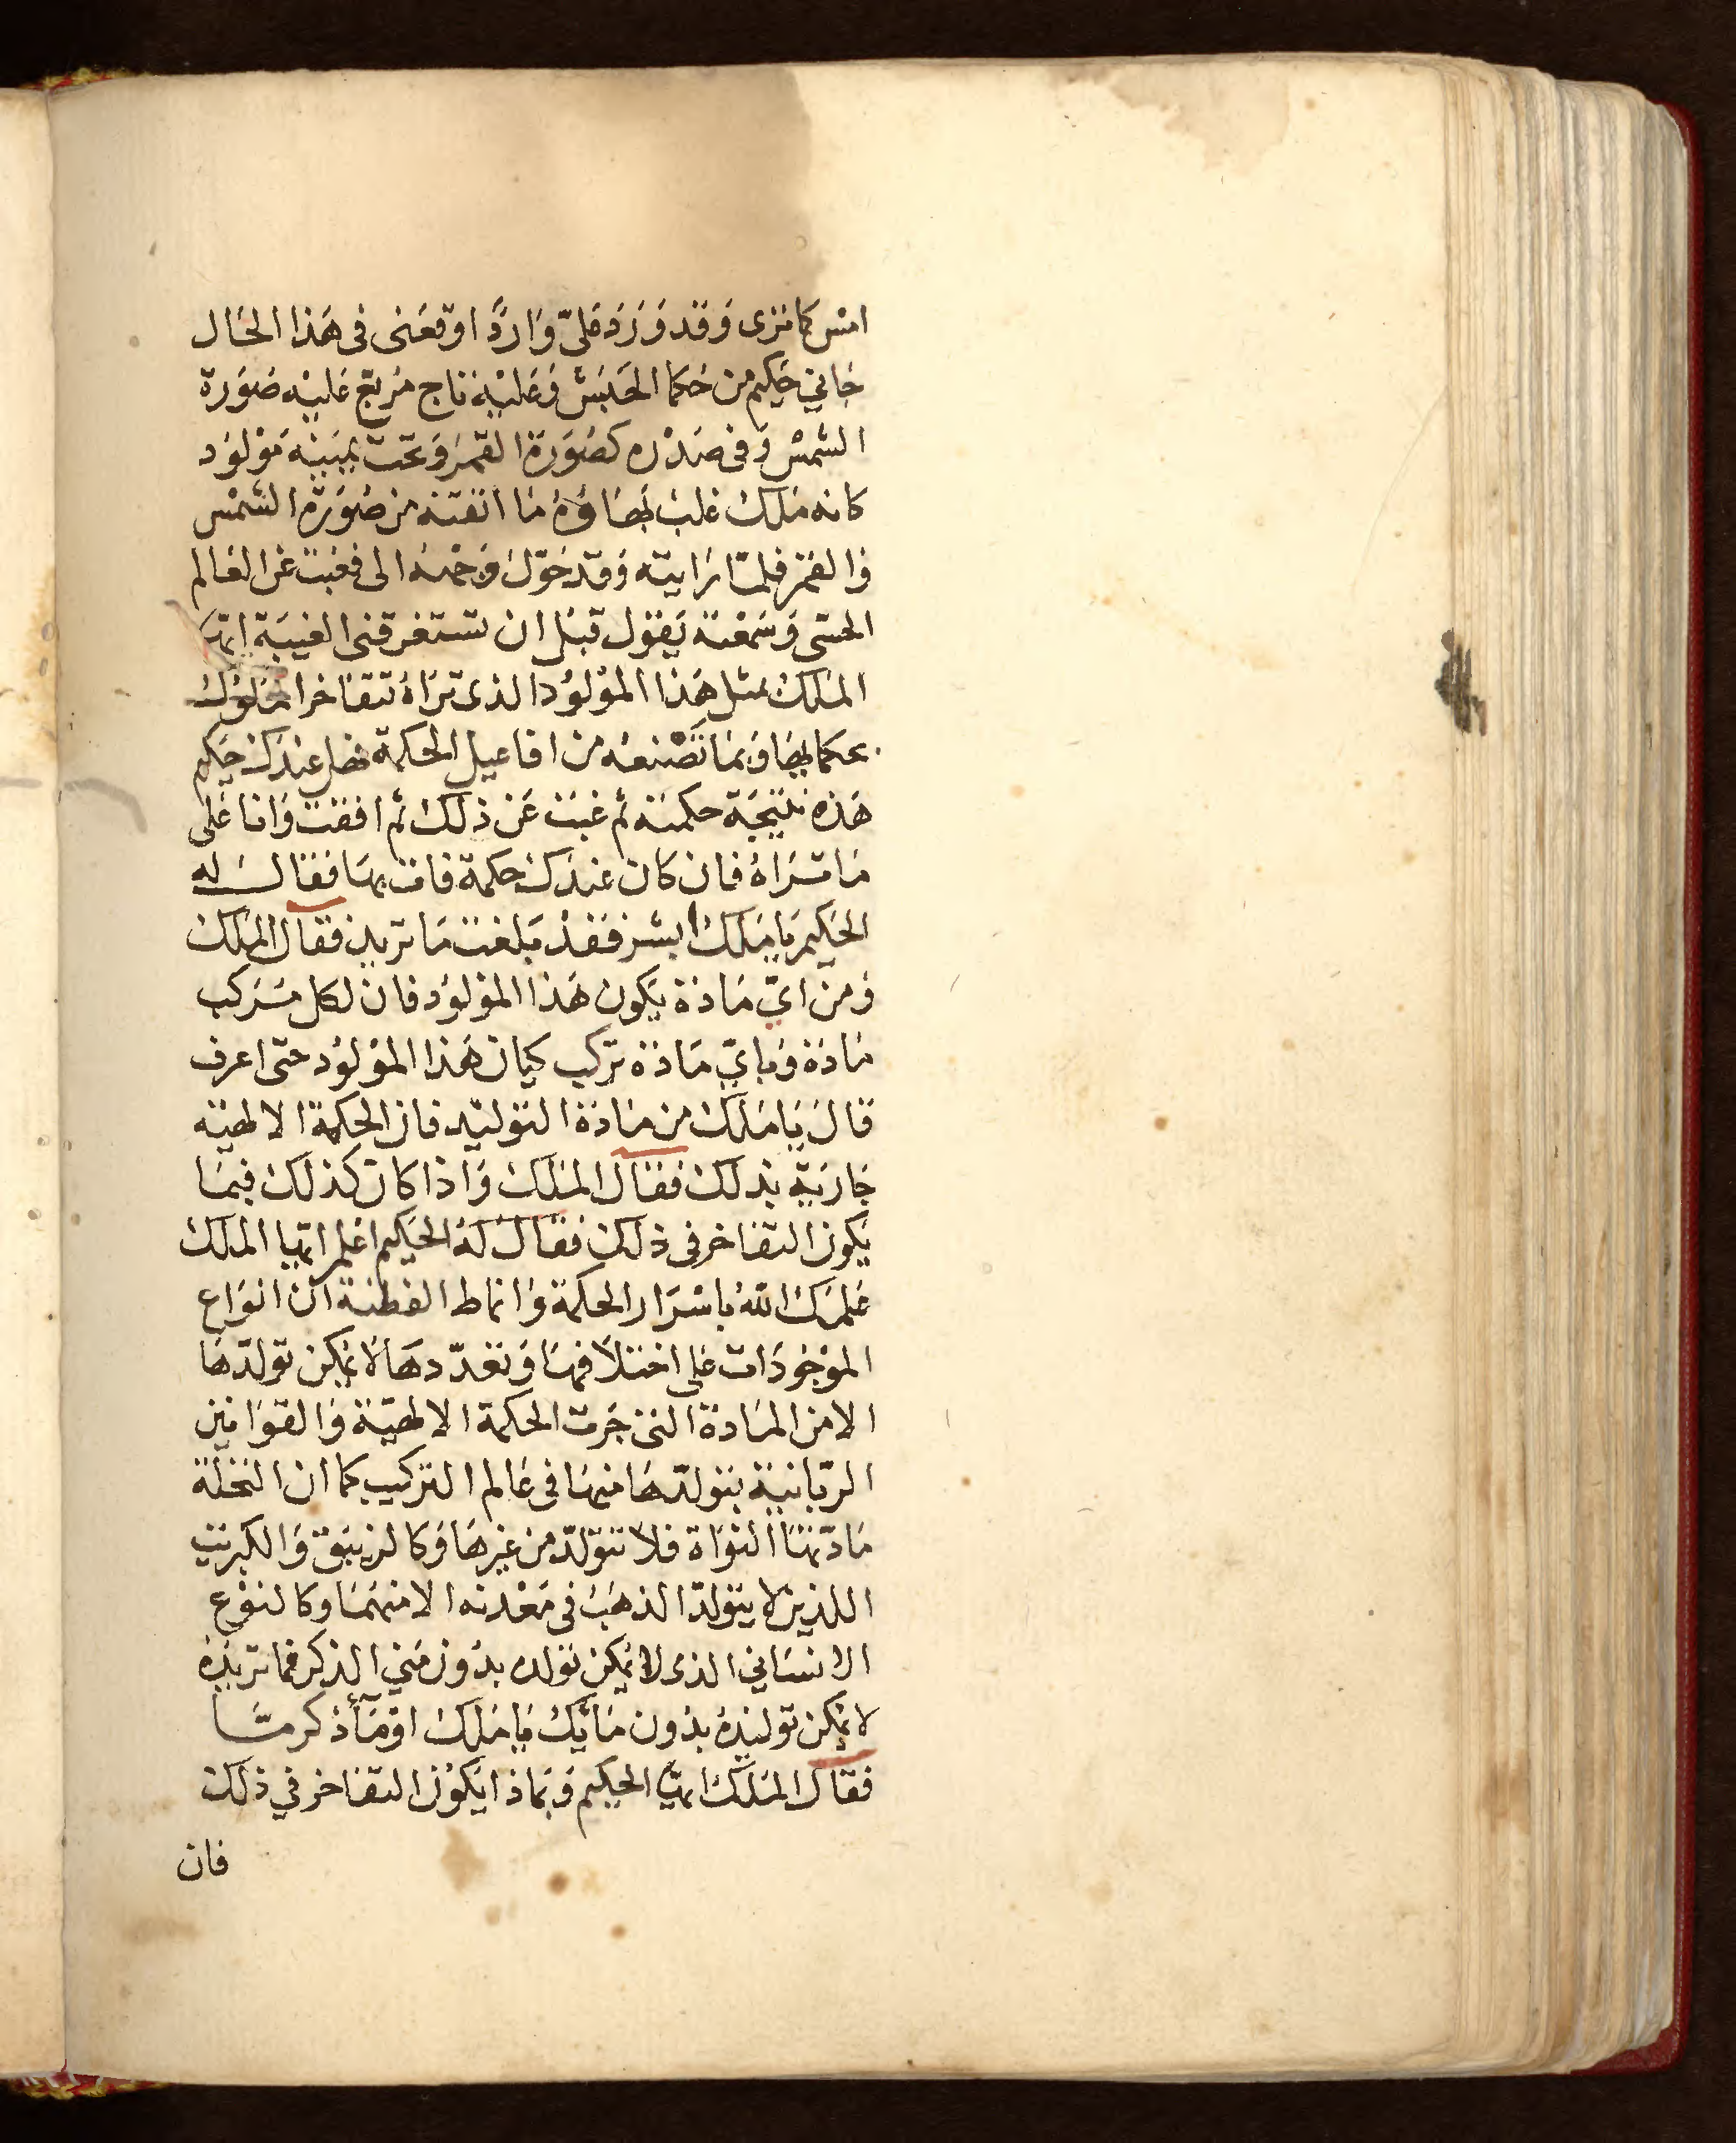 امس كما تزى وَقد وَرَدَ علىّ وَاردً اوقعَنى فى هَذا الحَال
جَاني حَكيم من حكما الحَبَش وَعَليْه تاج مُربّع عَليْه صُوَرة
الشمسْ وَفى صَدْره كصُوَرَة القمَر وَتحت يَمينِهْ مَوْلوُد
كانه مَلك غلبَ بَهَاؤهُ مَا اتقنَه من صُوَرَة الشمْس
وَالقمَر فلمّا رَايته وَقد حَوّل وَجْهَهُ الى فغبت عَن العَالم
الحسّى وَسَمعْته يَقوُل قبْل ان تستغرقنى الغيبَة ايّها
المَلك بمثل هَذا الموْلوُد الذى ترَاهُ تتفاخر الملوُك
بحكمايها وَبمَا تَصْنعهُ من افاعيل الحكمة فهل عندك حَكيم
هَذه نتيجَة حكمتَه ثم غبَت عَن ذلك ثم افقت وَانا عَلى
مَا ترَاهُ فان كان عندَك حكمة فات بهَا فقال لهُ
الحَكيم يَا مَلك ابشر فقدْ بَلغت مَا تريد فقال الملك
وَمن ايّ مَادة يَكون هَذا الموْلوُد فان لكل مُتركب
مَادَة وَبايّ مَادَة تركب كيان هَذا الموْلوُد حتى اعرف
قال يَا مَلك من مَادَة التوليد فان الحكمة الالهيّه
جَاريَة بذلك فقال الملك وَاذا كان كذلك فيمَا
يَكون التفاخر فى ذلك فقال لهُ الحَكيم اعْلم ايّها الملك
عَلمَك اللّهُ باسْرَار الحكمة وَانماط الفطنة انّ انوَاع
الموْجوُدَات عَلى اختلاَفهَا وَتعدّدهَا لا يمكن توَلدّهَا
الا من المَادة التى جَرت الحكمة الالهيّة وَالقوَانين
الربّانية بتولدّهَا منهَا فى عَالم التركيب كما ان النخلة
مَادّتهَا النوَاة فلا تتوَلدّ من غيرهَا وَكالزيبَق وَالكبريت
اللذين لا يتولدّ الذهَبُ فى مَعْدنه الا منهمَا وكالنوْع
الانسَاني الذى لا يمكن تولده بدُون مَني الذكر فما تريدهُ
لا يمكن توليدهُ بدُون مَائِك يَا مَلك اوْ مَا ذكر منّا
فقال المَلك ايّها الحكيم وَبمَاذا يَكوُن التفاخر في ذلك
فان